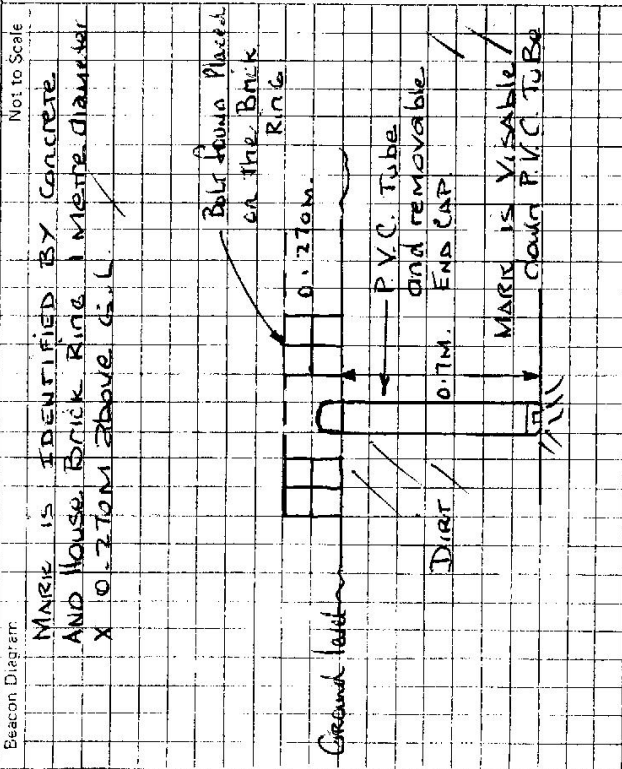 Beacon Diagram
Not to Scale
MARK IS IDENTIFIED BY CONCRETE
AND HOUSE BRICK RING 1 METRE diameter
X 0.270M above G.L.
Bolt down Placed
on the BRICK
RING
0.270M.
Ground level
P.V.C. Tube
and removable
END CAP.
0.7M.
DIRT
MARK IS VISABLE
down P.V.C. TUBE